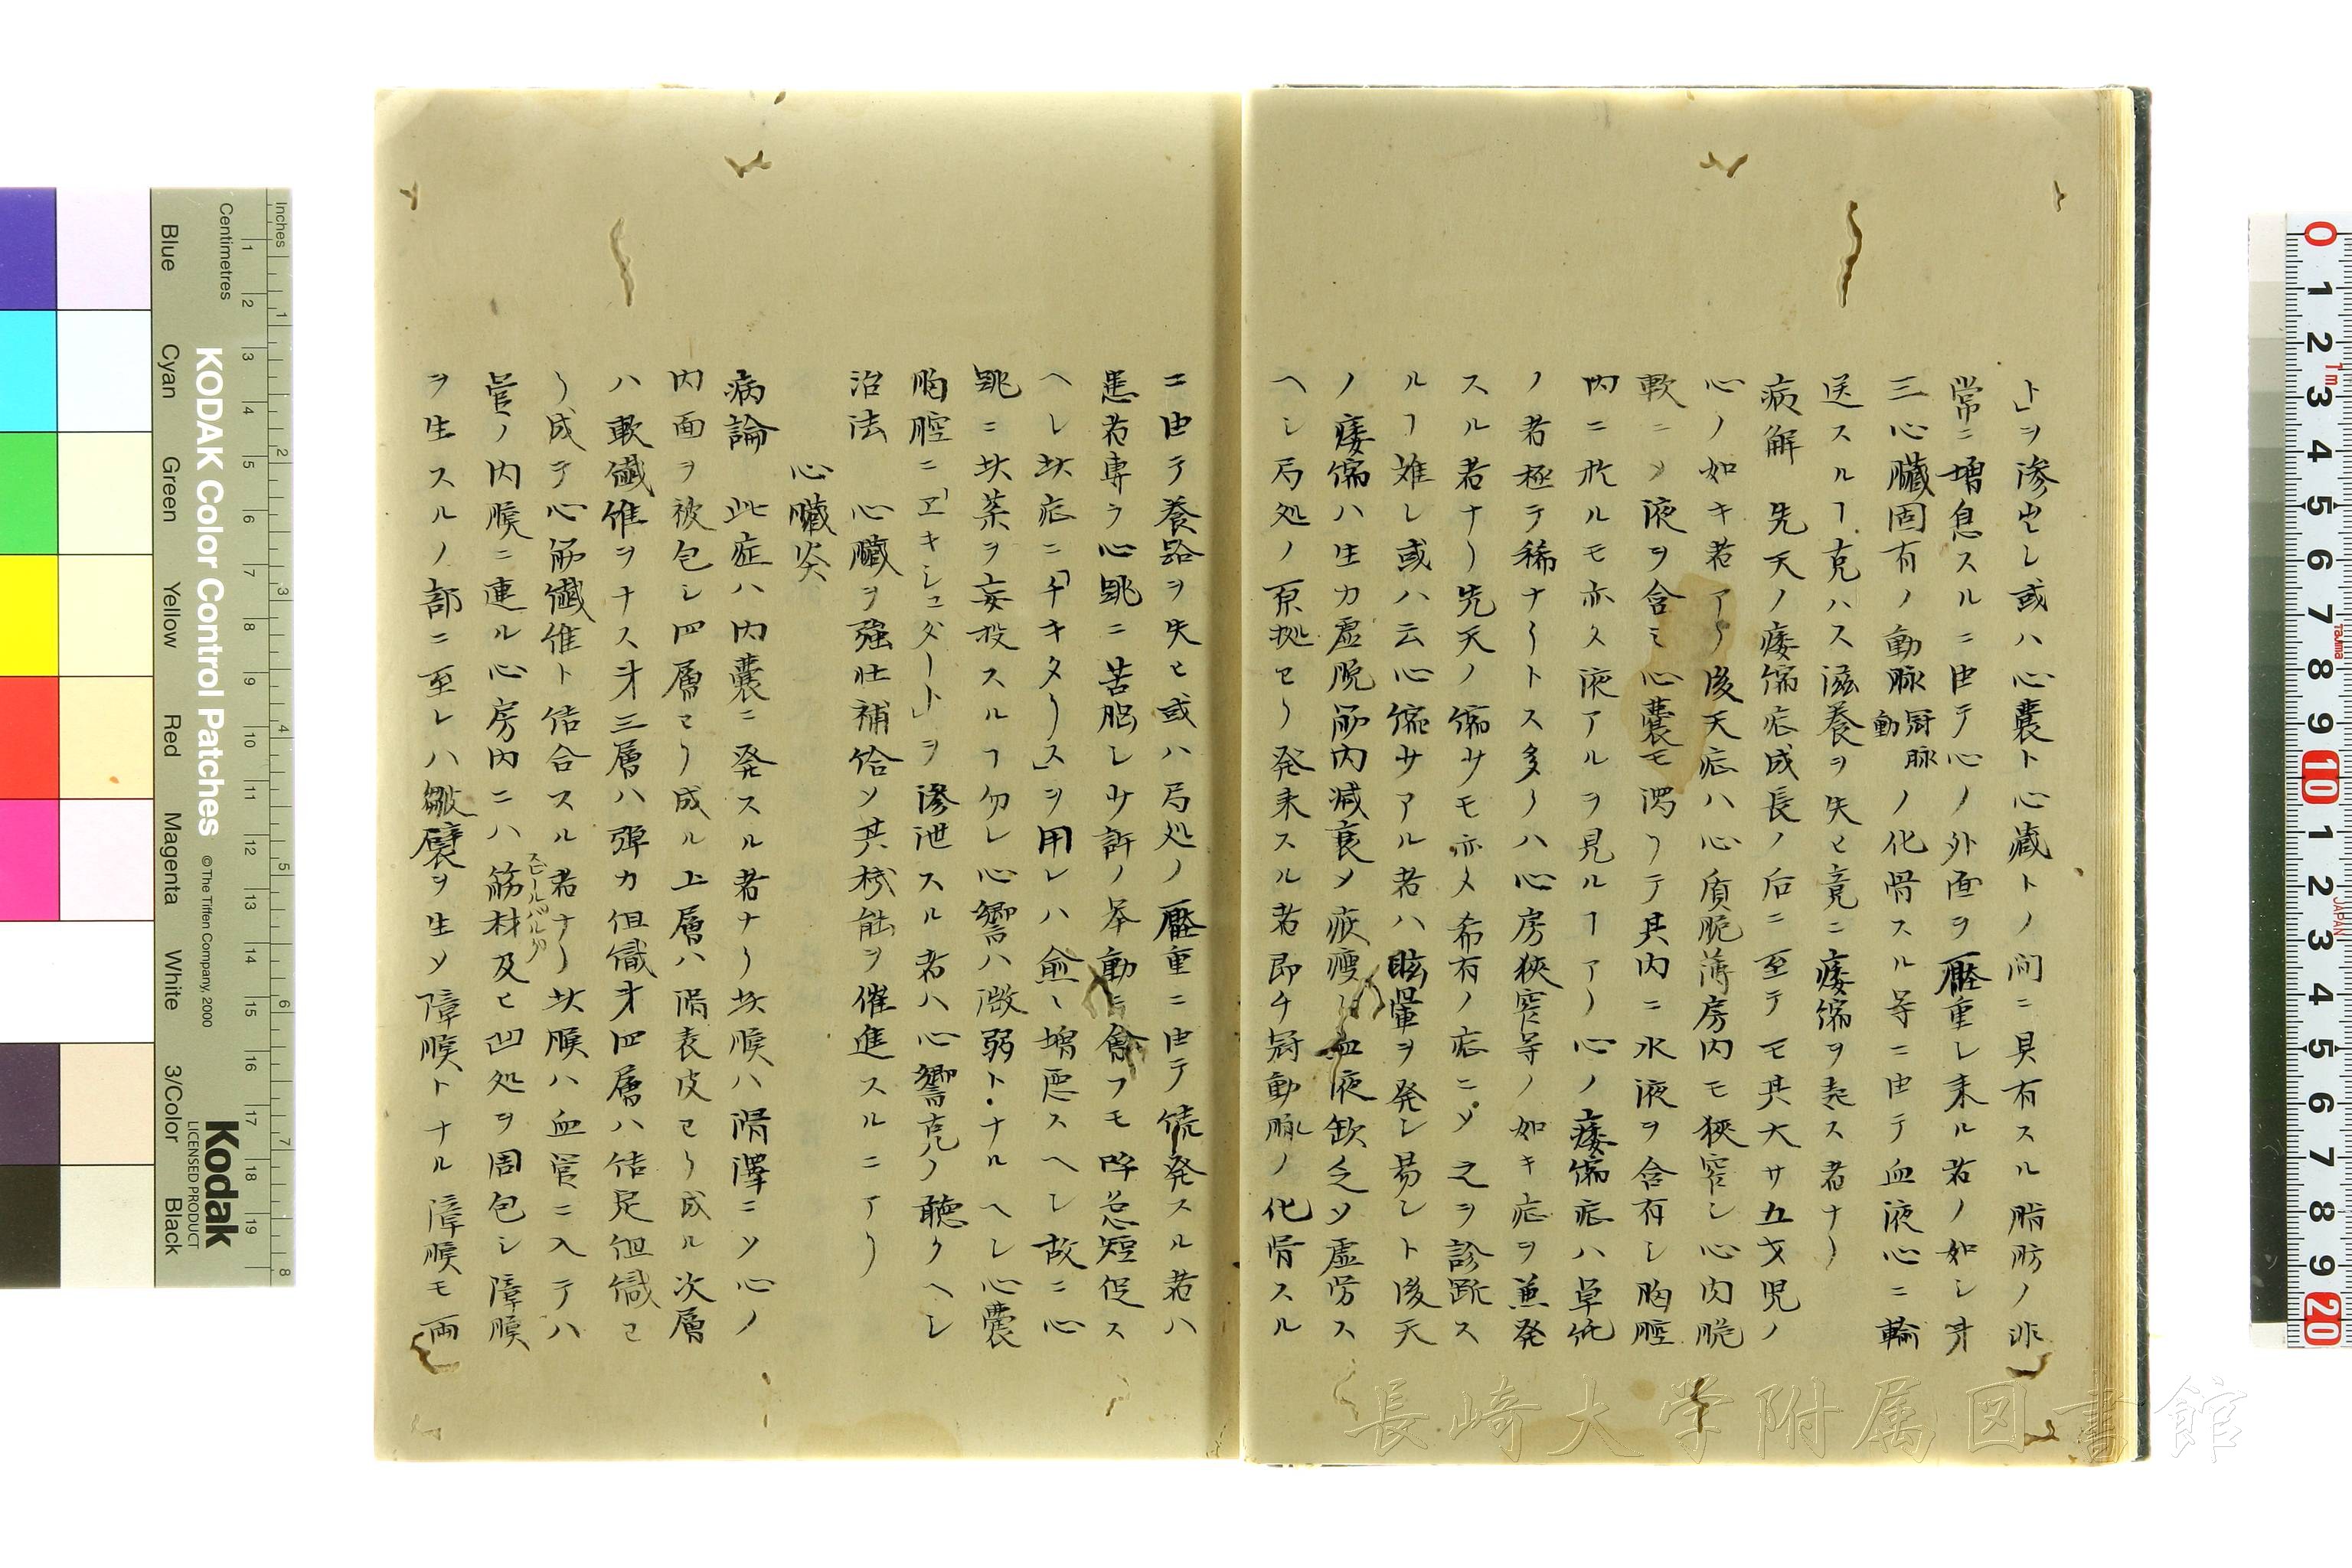 ト」ヲ滲出シ或ハ心嚢ト心蔵トノ间ニ具有スル脂肪ノ非
常ニ増息スルニ由テ心ノ外面ヲ壓重シ来ル者ノ如シ才
三心臓固有ノ動脉冠動脉ノ化骨スル等ニ由テ血液心ニ輸
送スルヿ克ハス滋養ヲ失ヒ竟ニ痿縮ヲ起ス者ナリ
病解 先天ノ痿縮症成長ノ后ニ至テモ其大サ五才児ノ
心ノ如キ者アリ後天症ハ心质脆薄房内モ狹窄シ心肉脆
軟ニメ液ヲ含ミ心嚢モ潤リテ其内ニ水液ヲ含有シ胸腔
内ニ於ルモ亦タ液アルヲ見ルヿアリ心ノ痿縮症ハ単純
ノ者極テ稀ナリトス多クハ心房狹窄等ノ如キ症ヲ兼発
スル者ナリ先天ノ縮サモ亦タ希有ノ症ニメ之ヲ診趾ス
ルヿ难シ或ハ云心縮サアル者ハ眩暈ヲ発シ易シト後天
ノ痿縮ハ生力虚脱筋肉減衰メ疲痩シ血液缺乏メ虚労ス
ヘシ局処ノ原拠ヨリ発来スル者即チ冠動脉ノ化骨スル
ニ由テ養路ヲ失ヒ或ハ局処ノ壓重ニ由テ続発スル者ハ
患者専ラ心跳ニ苦脳シ少許ノ举動ニ會フモ呼息短促ス
ヘシ此症ニ「チキタリス」ヲ用レハ愈々増悪スヘシ故ニ心
跳ニ此薬ヲ妄投スルヿ勿レ心響ハ微弱トナルヘシ心嚢
胸腔ニ「エキシュダート」ヲ滲泄スル者ハ心響克ク聴クヘシ
治法 心臓ヲ強壮補給メ其機能ヲ催進スルニアリ
心臓炎
病論 此症ハ内嚢ニ発スル者ナリ此膜ハ滑澤ニメ心ノ
内面ヲ被包シ四層ヨリ成ル上層ハ滑表皮ヨリ成ル次層
ハ軟繊維ヲナス才三層ハ弾力组織才四層ハ结足组織ヨ
リ成テ心筋繊維ト结合スル者ナリ此膜ハ血管ニ入テハ
管ノ内膜ニ連ル心房内ニハ筋材及ヒ凹処ヲ周包シ障膜
ヲ生スルノ部ニ至レハ皺襞ヲ生メ障膜トナル障膜モ両
KODAK Color Control Patches
© The Tiffen Company, 2000
Kodak
LICENSED PRODUCT
Inches
Centimetres
Blue Cyan Green Yellow Red Magenta White 3/Color Black
長崎大学附属図書館